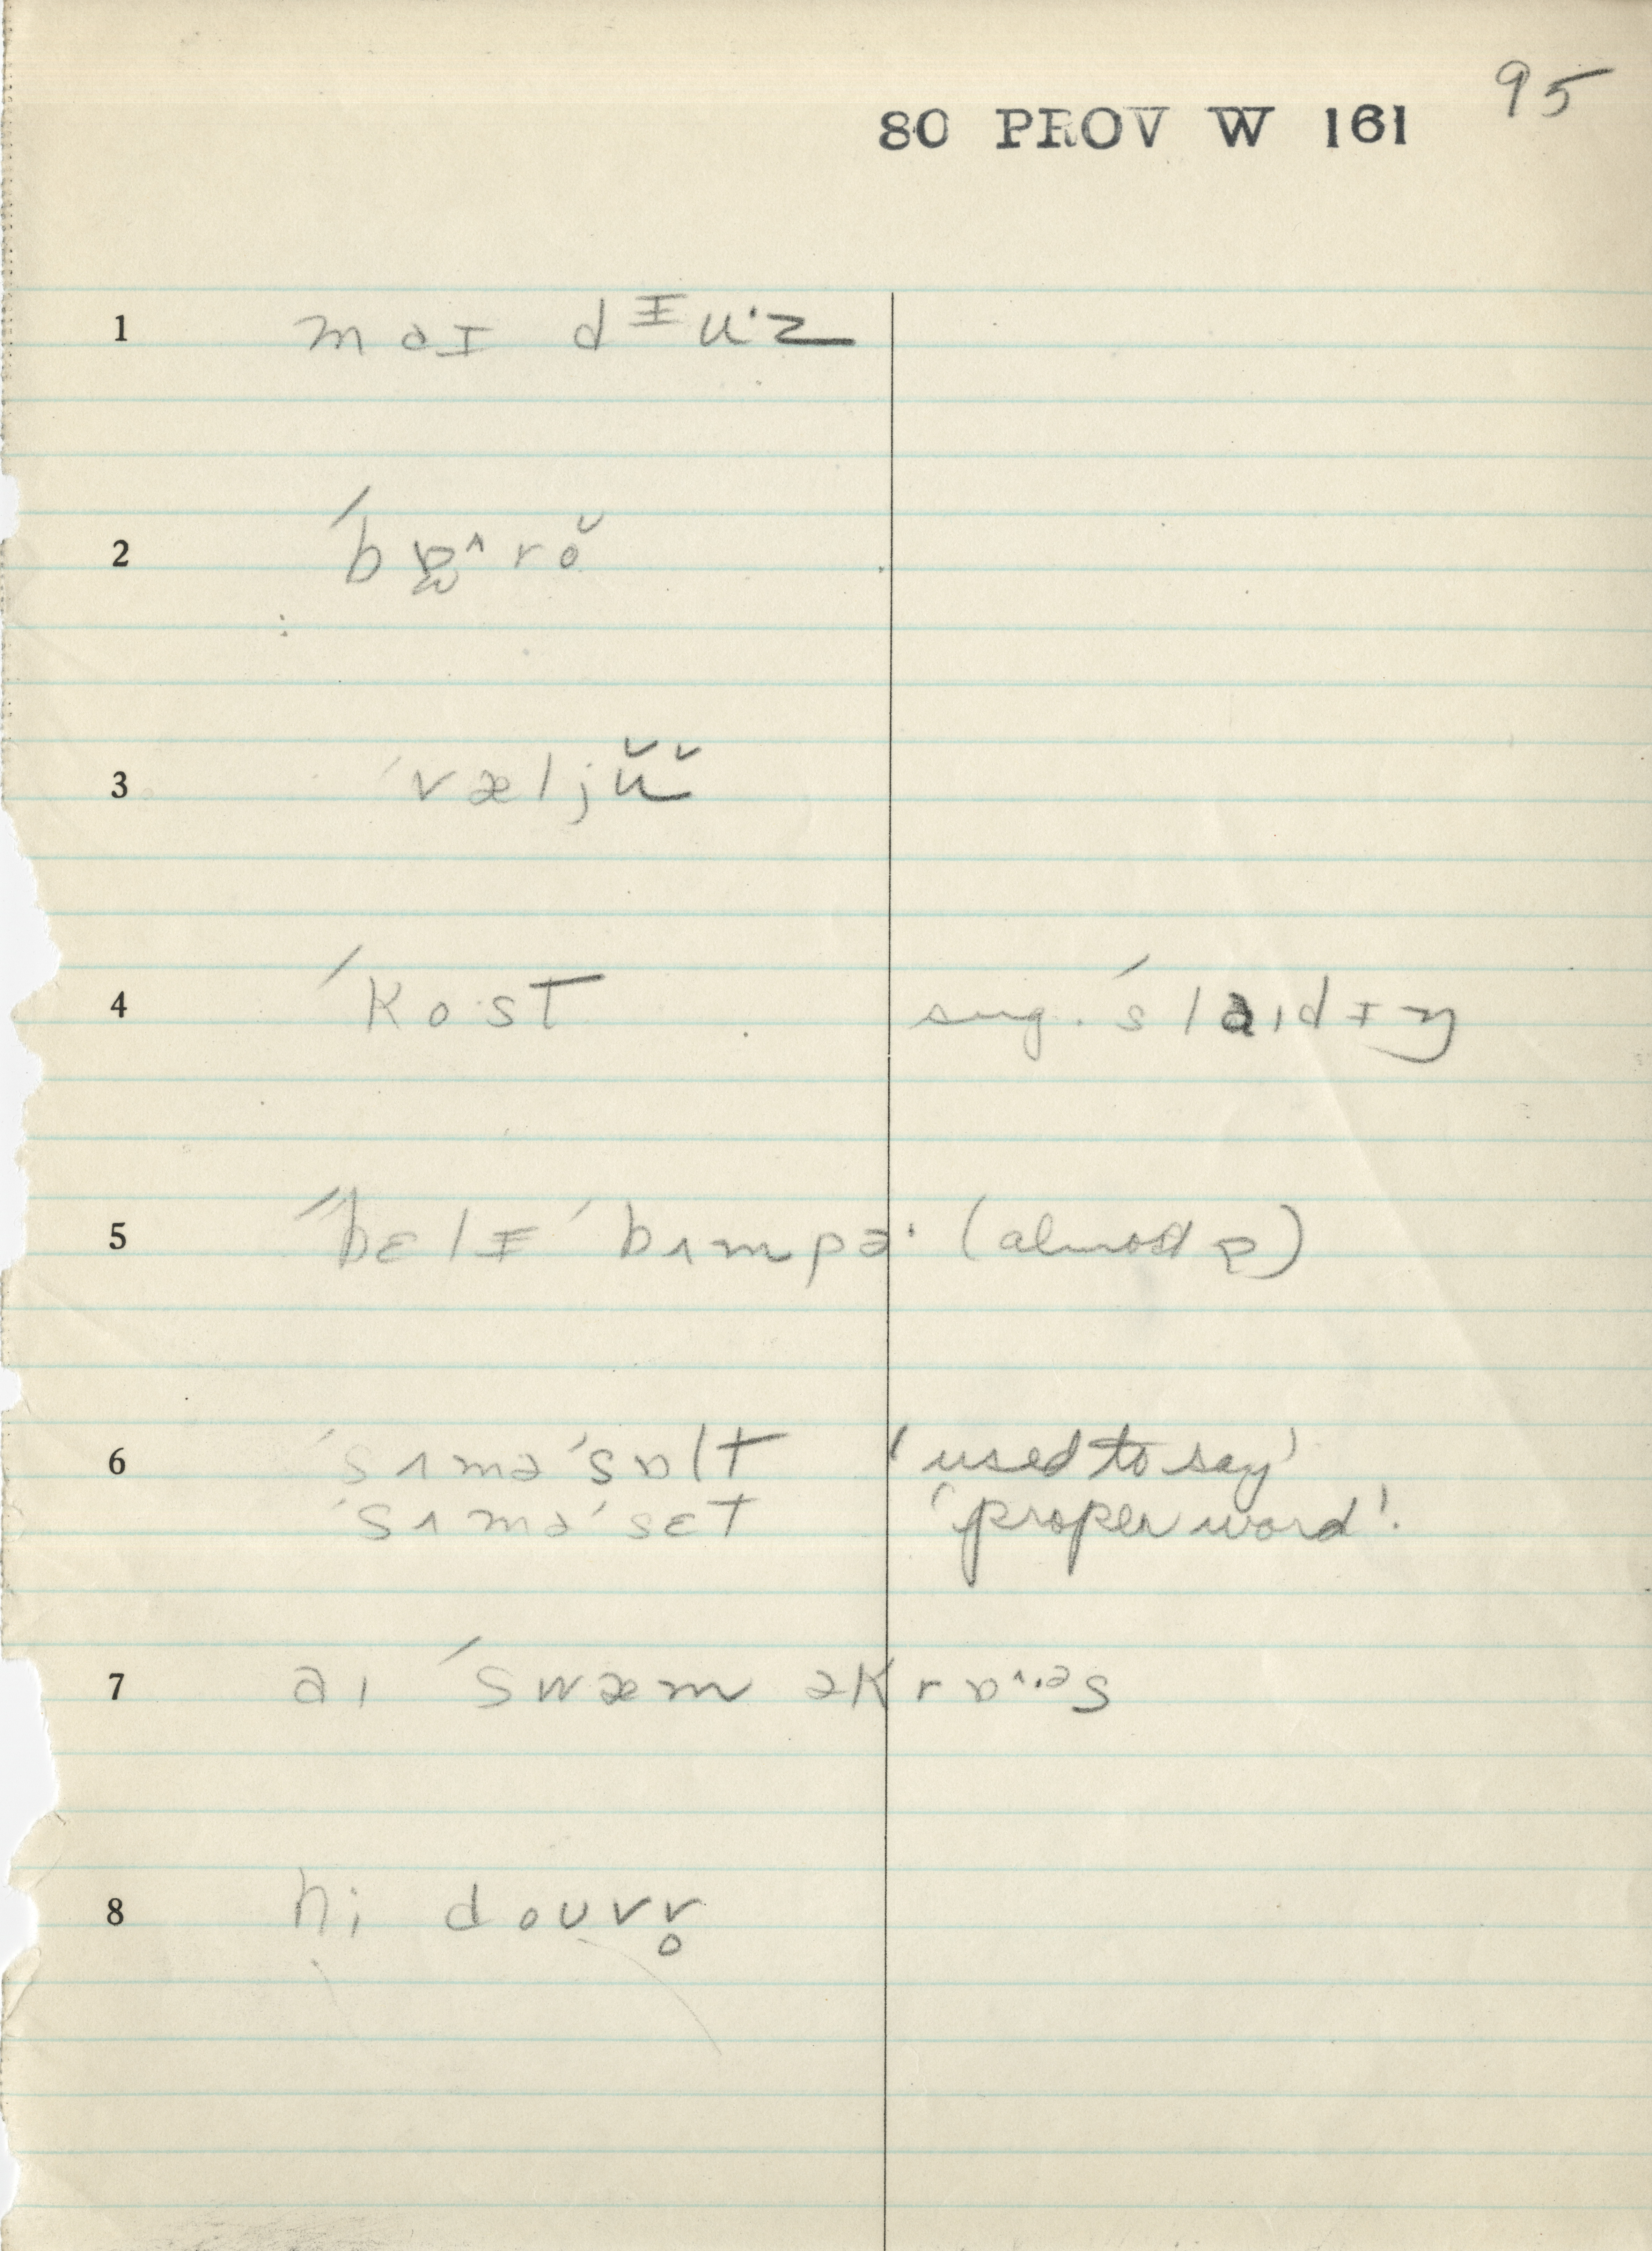 95
80 PROV W 161
1 m ɑɪ dᵻuˑz
2 ˈbɒ̰^rŏ
3 ˈvæljŭ̆
4 ˈkost sug. ˈslaɪdɪŋ
5 ˈˈbɛlᵻ ˈbʌmpəˑ (almost p)
6 ˈsʌməˈsɒlt 'used to say'
ˈsʌməˈsɛt 'proper word'.
7 aɪ ˈswæm əkrɒ^··ᵊs
8 hi doʊvv̥